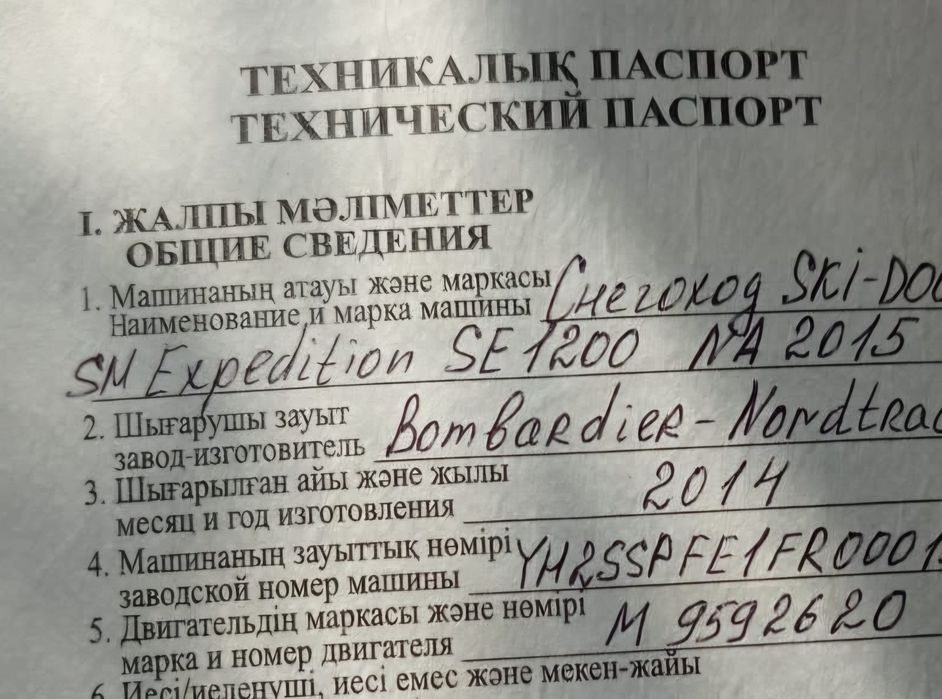 ТЕХНИКАЛЫҚ ПАСПОРТ
ТЕХНИЧЕСКИЙ ПАСПОРТ
I. ЖАЛПЫ МӘЛІМЕТТЕР
ОБЩИЕ СВЕДЕНИЯ
1. Машинаның атауы және маркасы
Наименование и марка машины Снегоход SKi-DOO
SM Expedition SE 1200 NA 2015
2. Шығарушы зауыт
завод-изготовитель Bombardier-Nordtrac
3. Шығарылған айы және жылы
месяц и год изготовления 2014
4. Машинаның зауыттық нөмірі
заводской номер машины YH2SSPFE1FR0001
5. Двигательдің маркасы және нөмірі
марка и номер двигателя M 9592620
6. Иесі/иеленуші, иесі емес және мекен-жайы